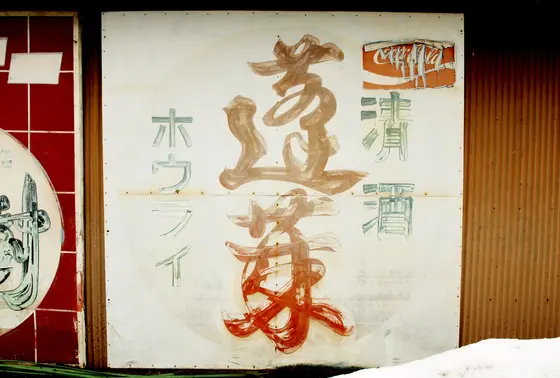 清酒
蓬莱
ホウライ